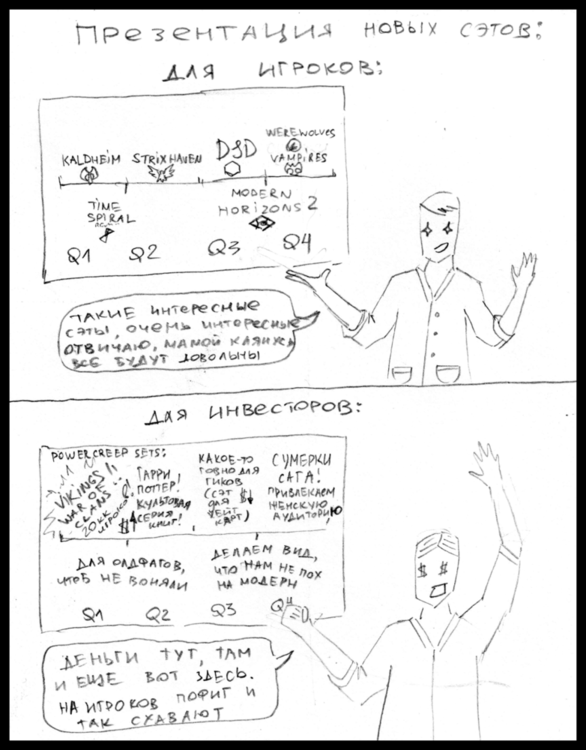 ПРЕЗЕНТАЦИЯ НОВЫХ СЭТОВ:
ДЛЯ ИГРОКОВ:
KALDHEIM
STRIXHAVEN
D&D
WEREWOLVES
VAMPIRES
TIME
SPIRAL
MODERN
HORIZONS 2
Q1 Q2 Q3 Q4
ТАКИЕ ИНТЕРЕСНЫЕ
СЭТЫ, ОЧЕНЬ ИНТЕРЕСНЫЕ
ОТВИЧАЮ, МАМОЙ КЛЯНУСЬ
ВСЕ БУДУТ ДОВОЛЬНЫ
ДЛЯ ИНВЕСТОРОВ:
POWERCREEP SETS:
VIKINGS!!
WAR OF
CLANS
20КК
ГАРРИ
ПОТЕР!
КУЛЬТОВАЯ
СЕРИЯ
КНИГ!
КАКОЕ-ТО
ГОВНО ДЛЯ
ГИКОВ
(СЭТ
ДЛЯ
КАРТ)
СУМЕРКИ
САГА!
ПРИВЛЕКАЕМ
ЖЕНСКУЮ
АУДИТОРИЮ
ДЛЯ ОЛДФАГОВ,
ЧТОБ НЕ ВОНЯЛИ
ДЕЛАЕМ ВИД,
ЧТО НАМ НЕ ПОХ
НА МОДЕРН
Q1 Q2 Q3 Q4
ДЕНЬГИ ТУТ, ТАМ
И ЕЩЕ ВОТ ЗДЕСЬ.
НА ИГРОКОВ ПОФИГ И
ТАК СХАВАЮТ